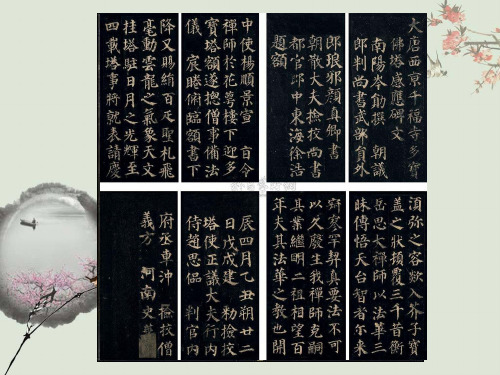 大唐西京千福寺多寶
佛塔感應碑文
南陽岑勛撰 朝議
郎判尚書武部員外
郎琅邪顏真卿書
朝散大夫撿挍尚書
都官郎中東海徐浩
題額
中使楊順景宣 旨令
禪師於花萼樓下迎多
寶塔額遂摠僧事備法
儀 宸睠俯臨額書下
降又賜絹百疋聖札飛
毫動雲龍之氣象天文
挂塔駐日月之光輝至
四載塔事將就表請慶
湏弥之容欻入芥子寶
盖之狀頓覆三千昔衡
岳思大禪師以法華三
昧傳悟天台智者尒来
寂寥罕契真要法不可
以久廢生我禪師克嗣
其業継明二祖相望百
年夫其法華之教也開
辰四月乙丑朔廿二
日戊戌建 勑撿挍
塔使正議大夫行内
侍趙思偘 判官内
府丞車沖 撿挍僧
義方 河南史華